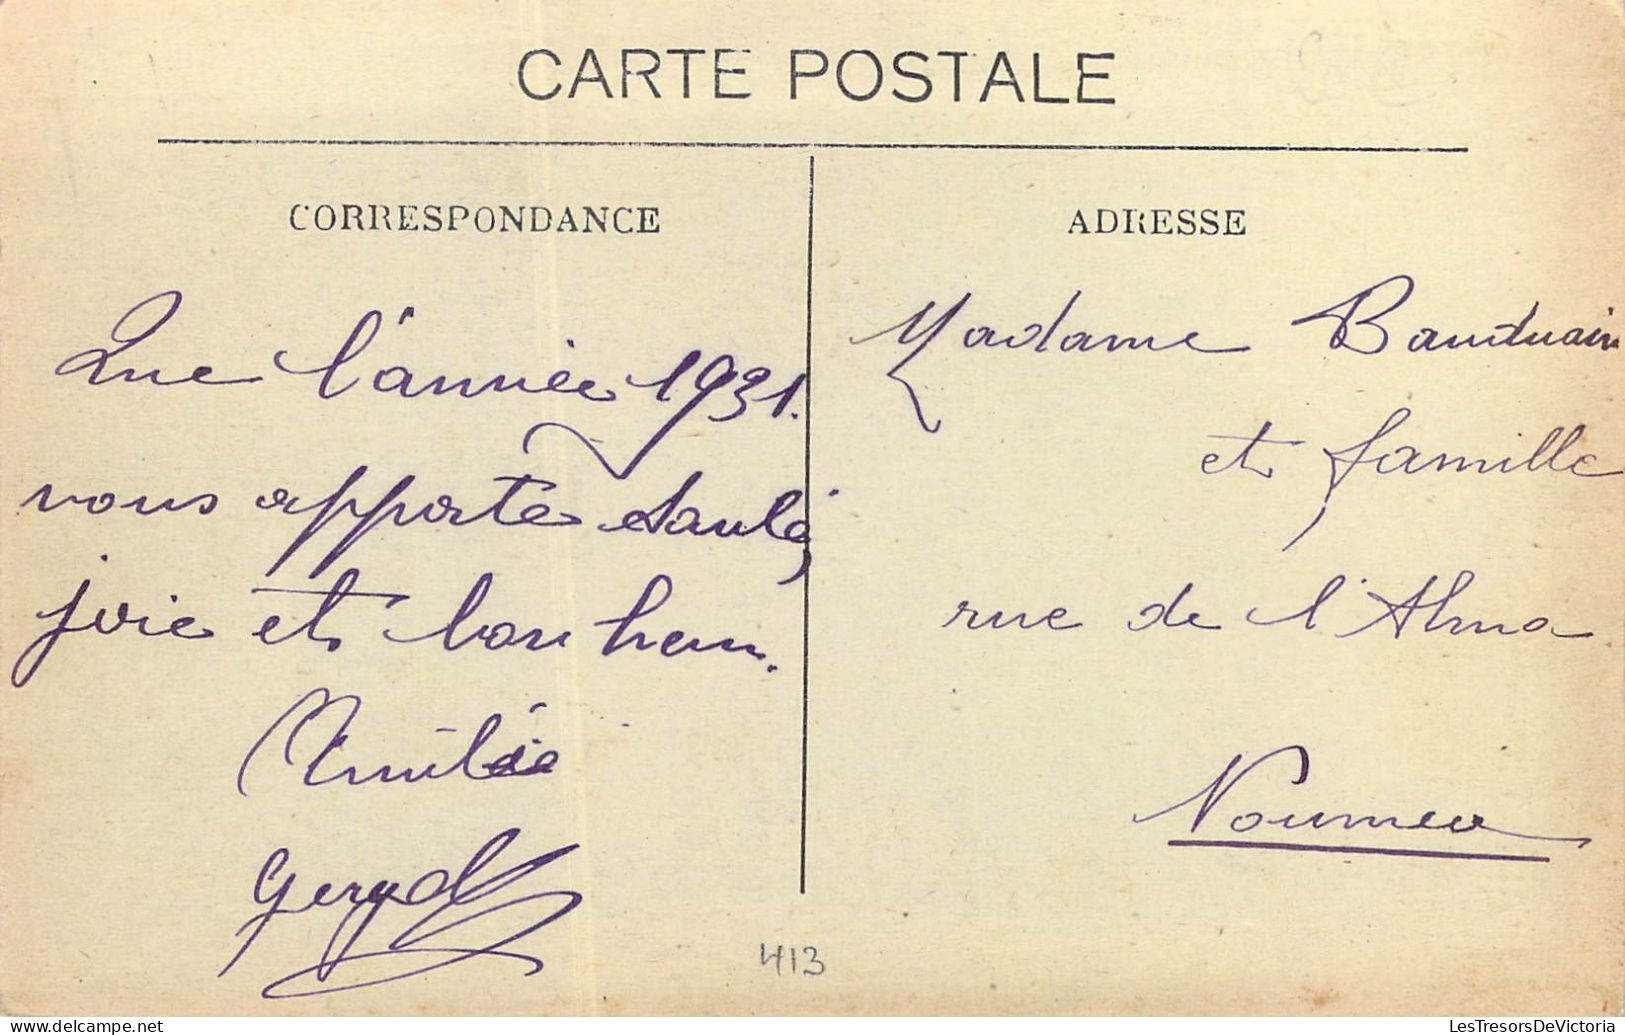 CARTE POSTALE
CORRESPONDANCE
Que l'année 1931.
vous apporte santé,
joie et bonheur.
ADRESSE
Madame Bauduain
et famille
rue de l'Alma
Noumea
413
LesTresorsDeVictoria
© delcampe.net
LesTresorsDeVictoria